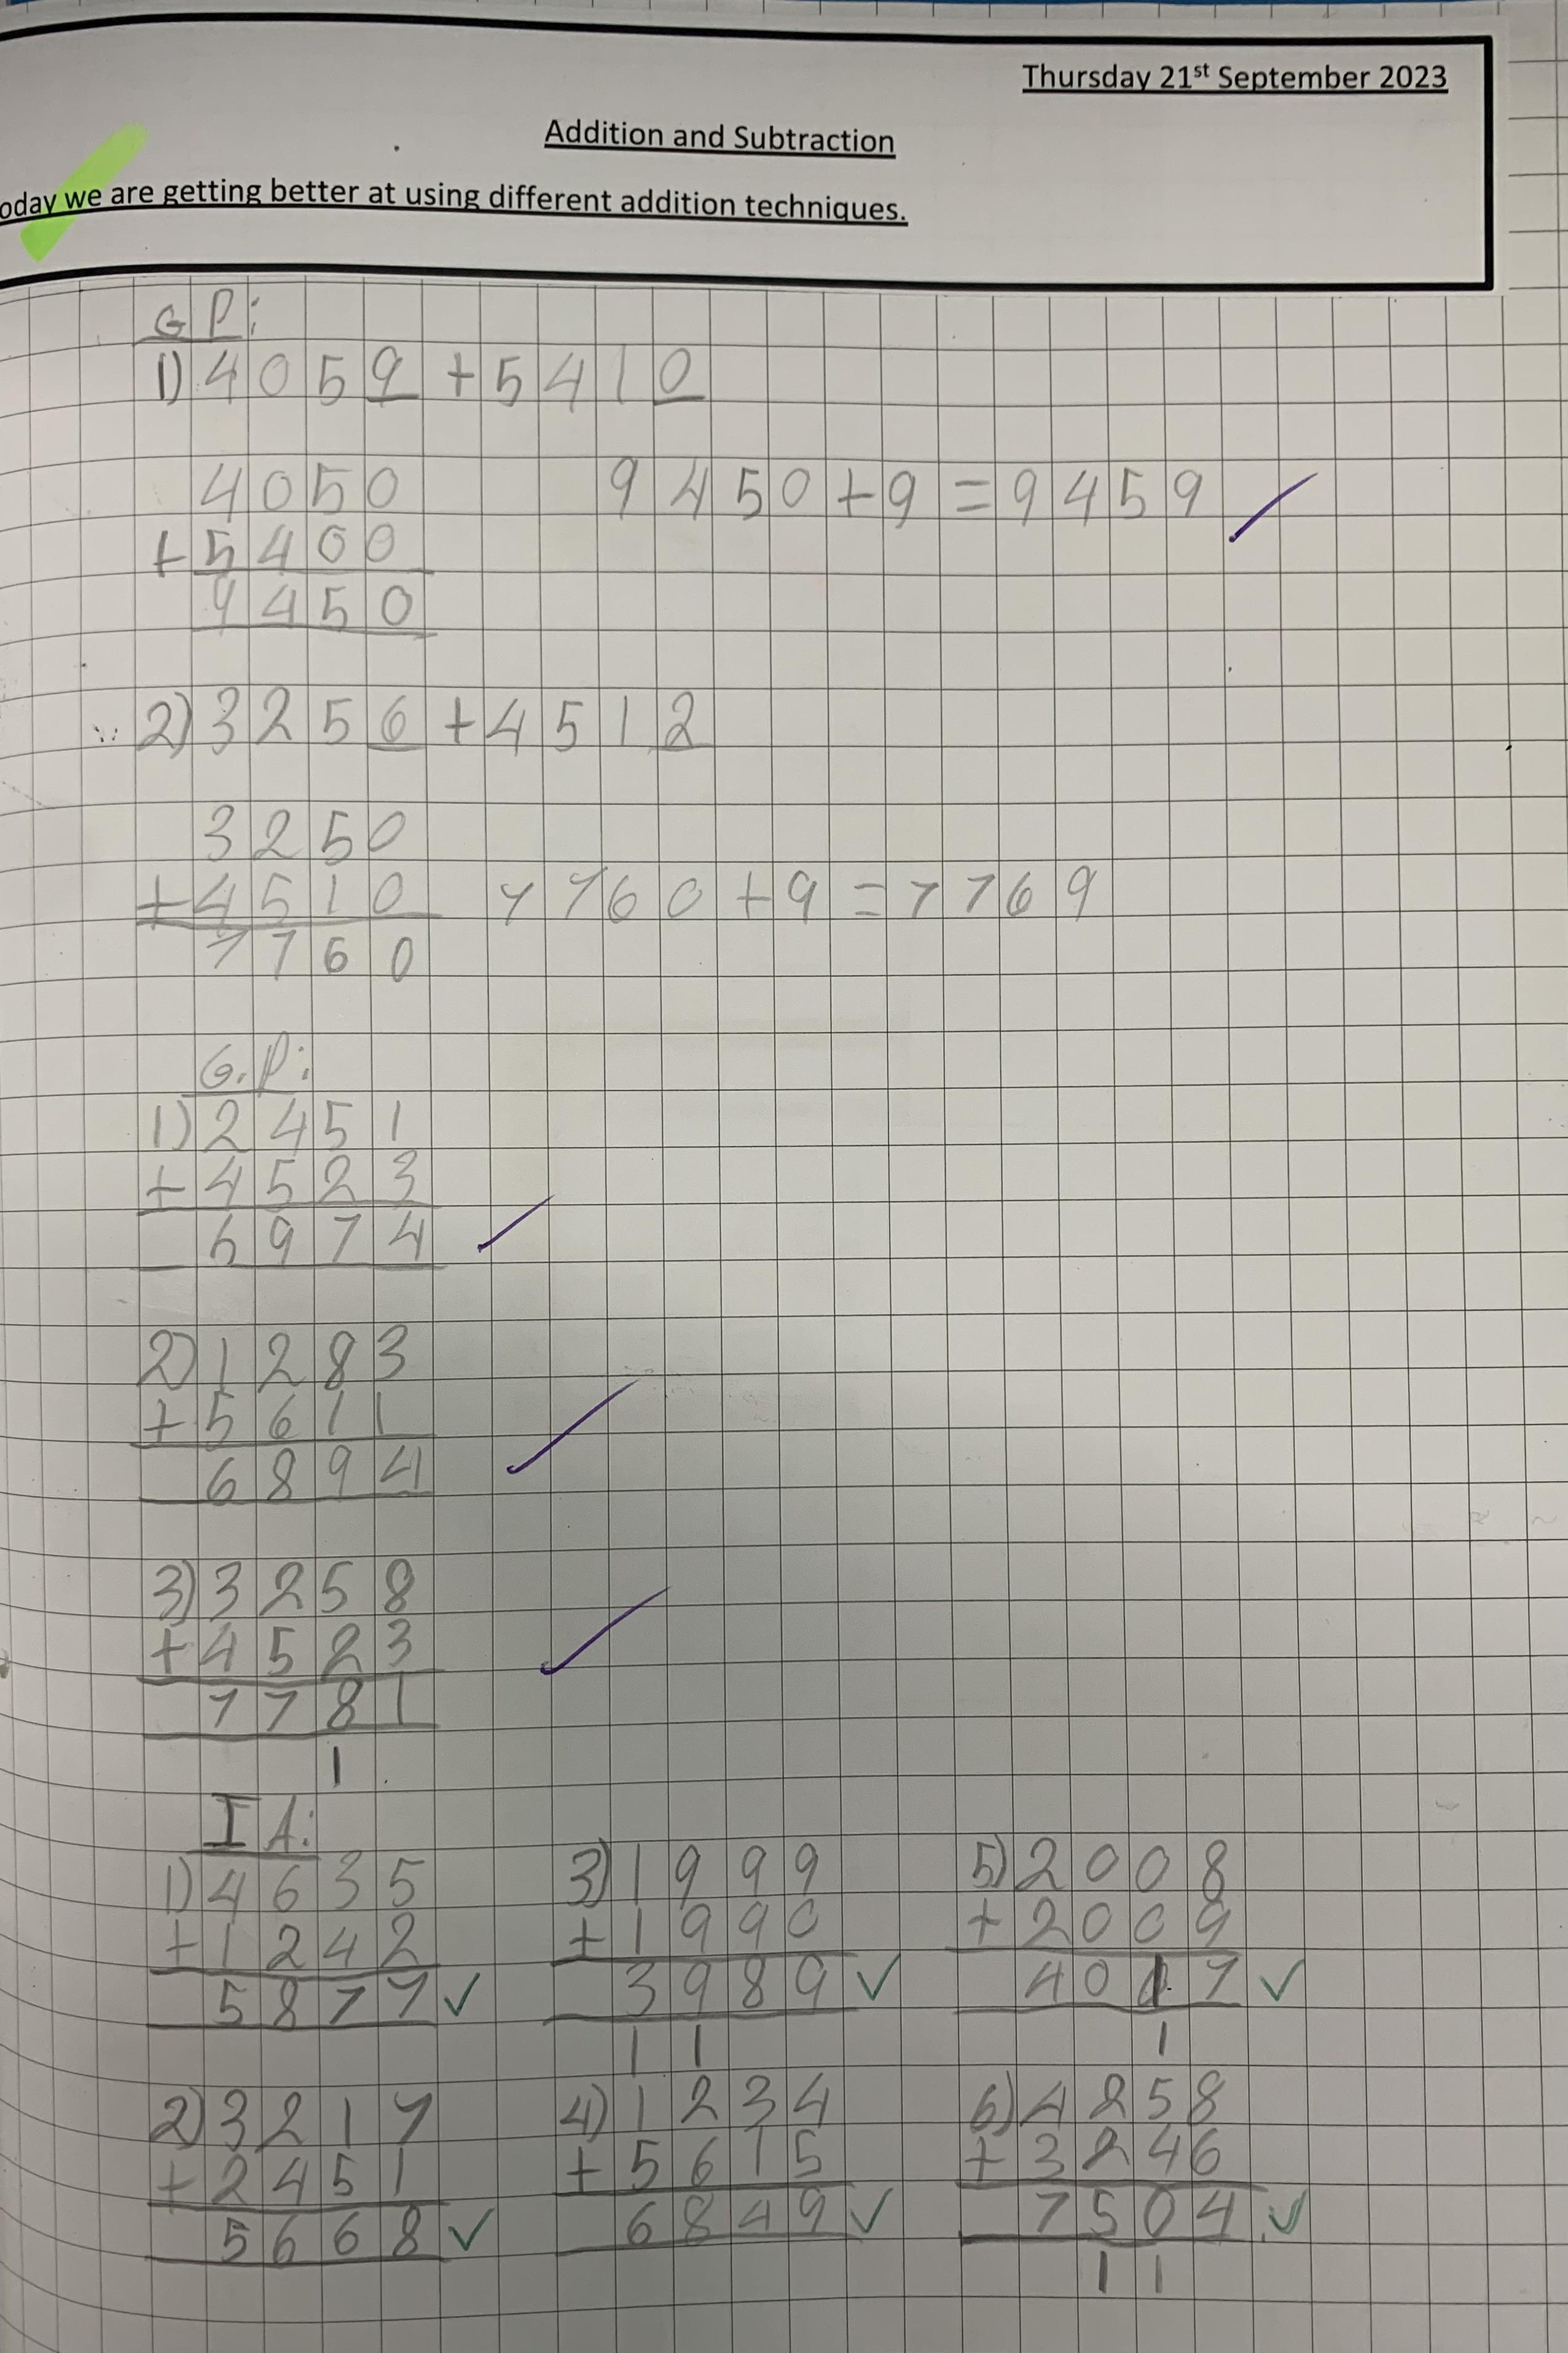 Thursday 21st September 2023
Addition and Subtraction
oday we are getting better at using different addition techniques.
G P:
1) 4059 + 5410
4050
9450 + 9 = 9459
+ 5400
9450
2) 3256 + 4512
3250
+ 4510
7760 + 9 = 7769
7760
G.P:
1) 2451
+ 4523
6974
2) 1283
+ 5611
6894
3) 3258
+ 4523
7781
1
I A:
1) 4635
+ 1242
5877
3) 1999
+ 1990
3989
1 1
5) 2008
+ 2009
4017
1
2) 3217
+ 2451
5668
4) 1234
+ 5615
6849
6) 4258
+ 3246
7504
1 1